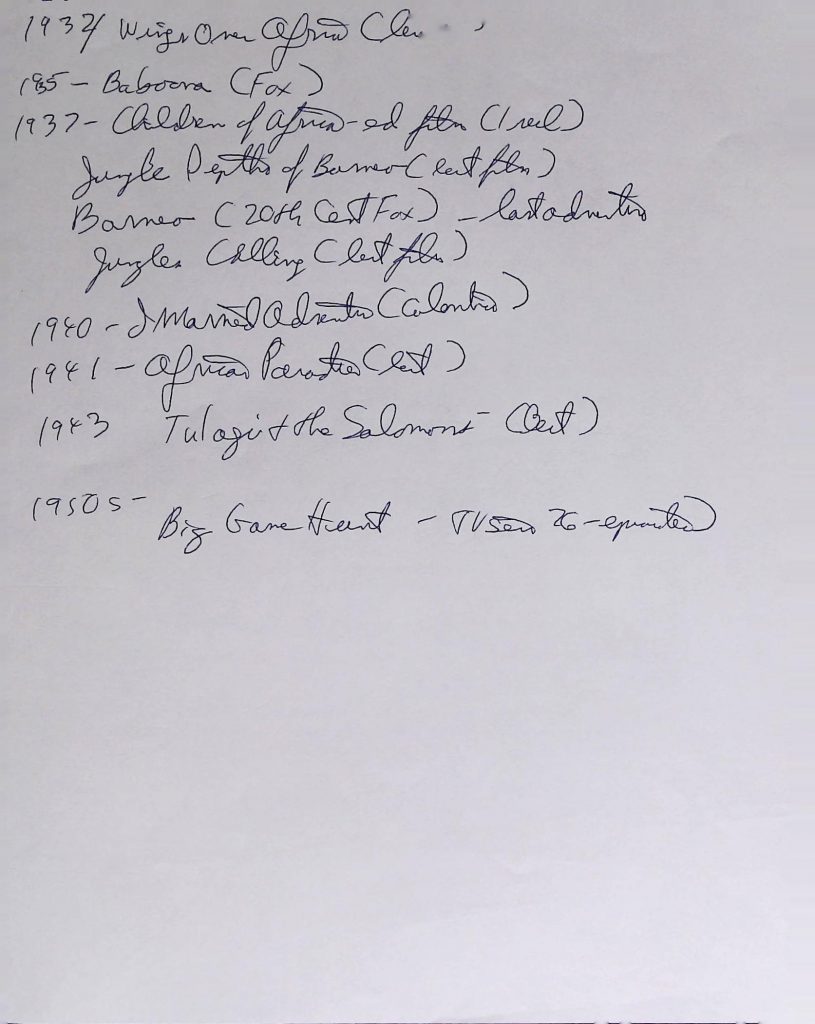 1934 Wings Over Africa (lec
1935 - Baboona (Fox)
1937 - Children of Africa - ed film (1 reel)
Jungle Depths of Borneo (lect film)
Borneo (20th Cent Fox) - last adventure
Jungles Calling (lect film)
1940 - I Married Adventure (Columbia)
1941 - African Paradise (lect)
1943 Tulagi & the Solomons - (lect)
1950s -
Big Game Hunt - TV series 26 - episodes